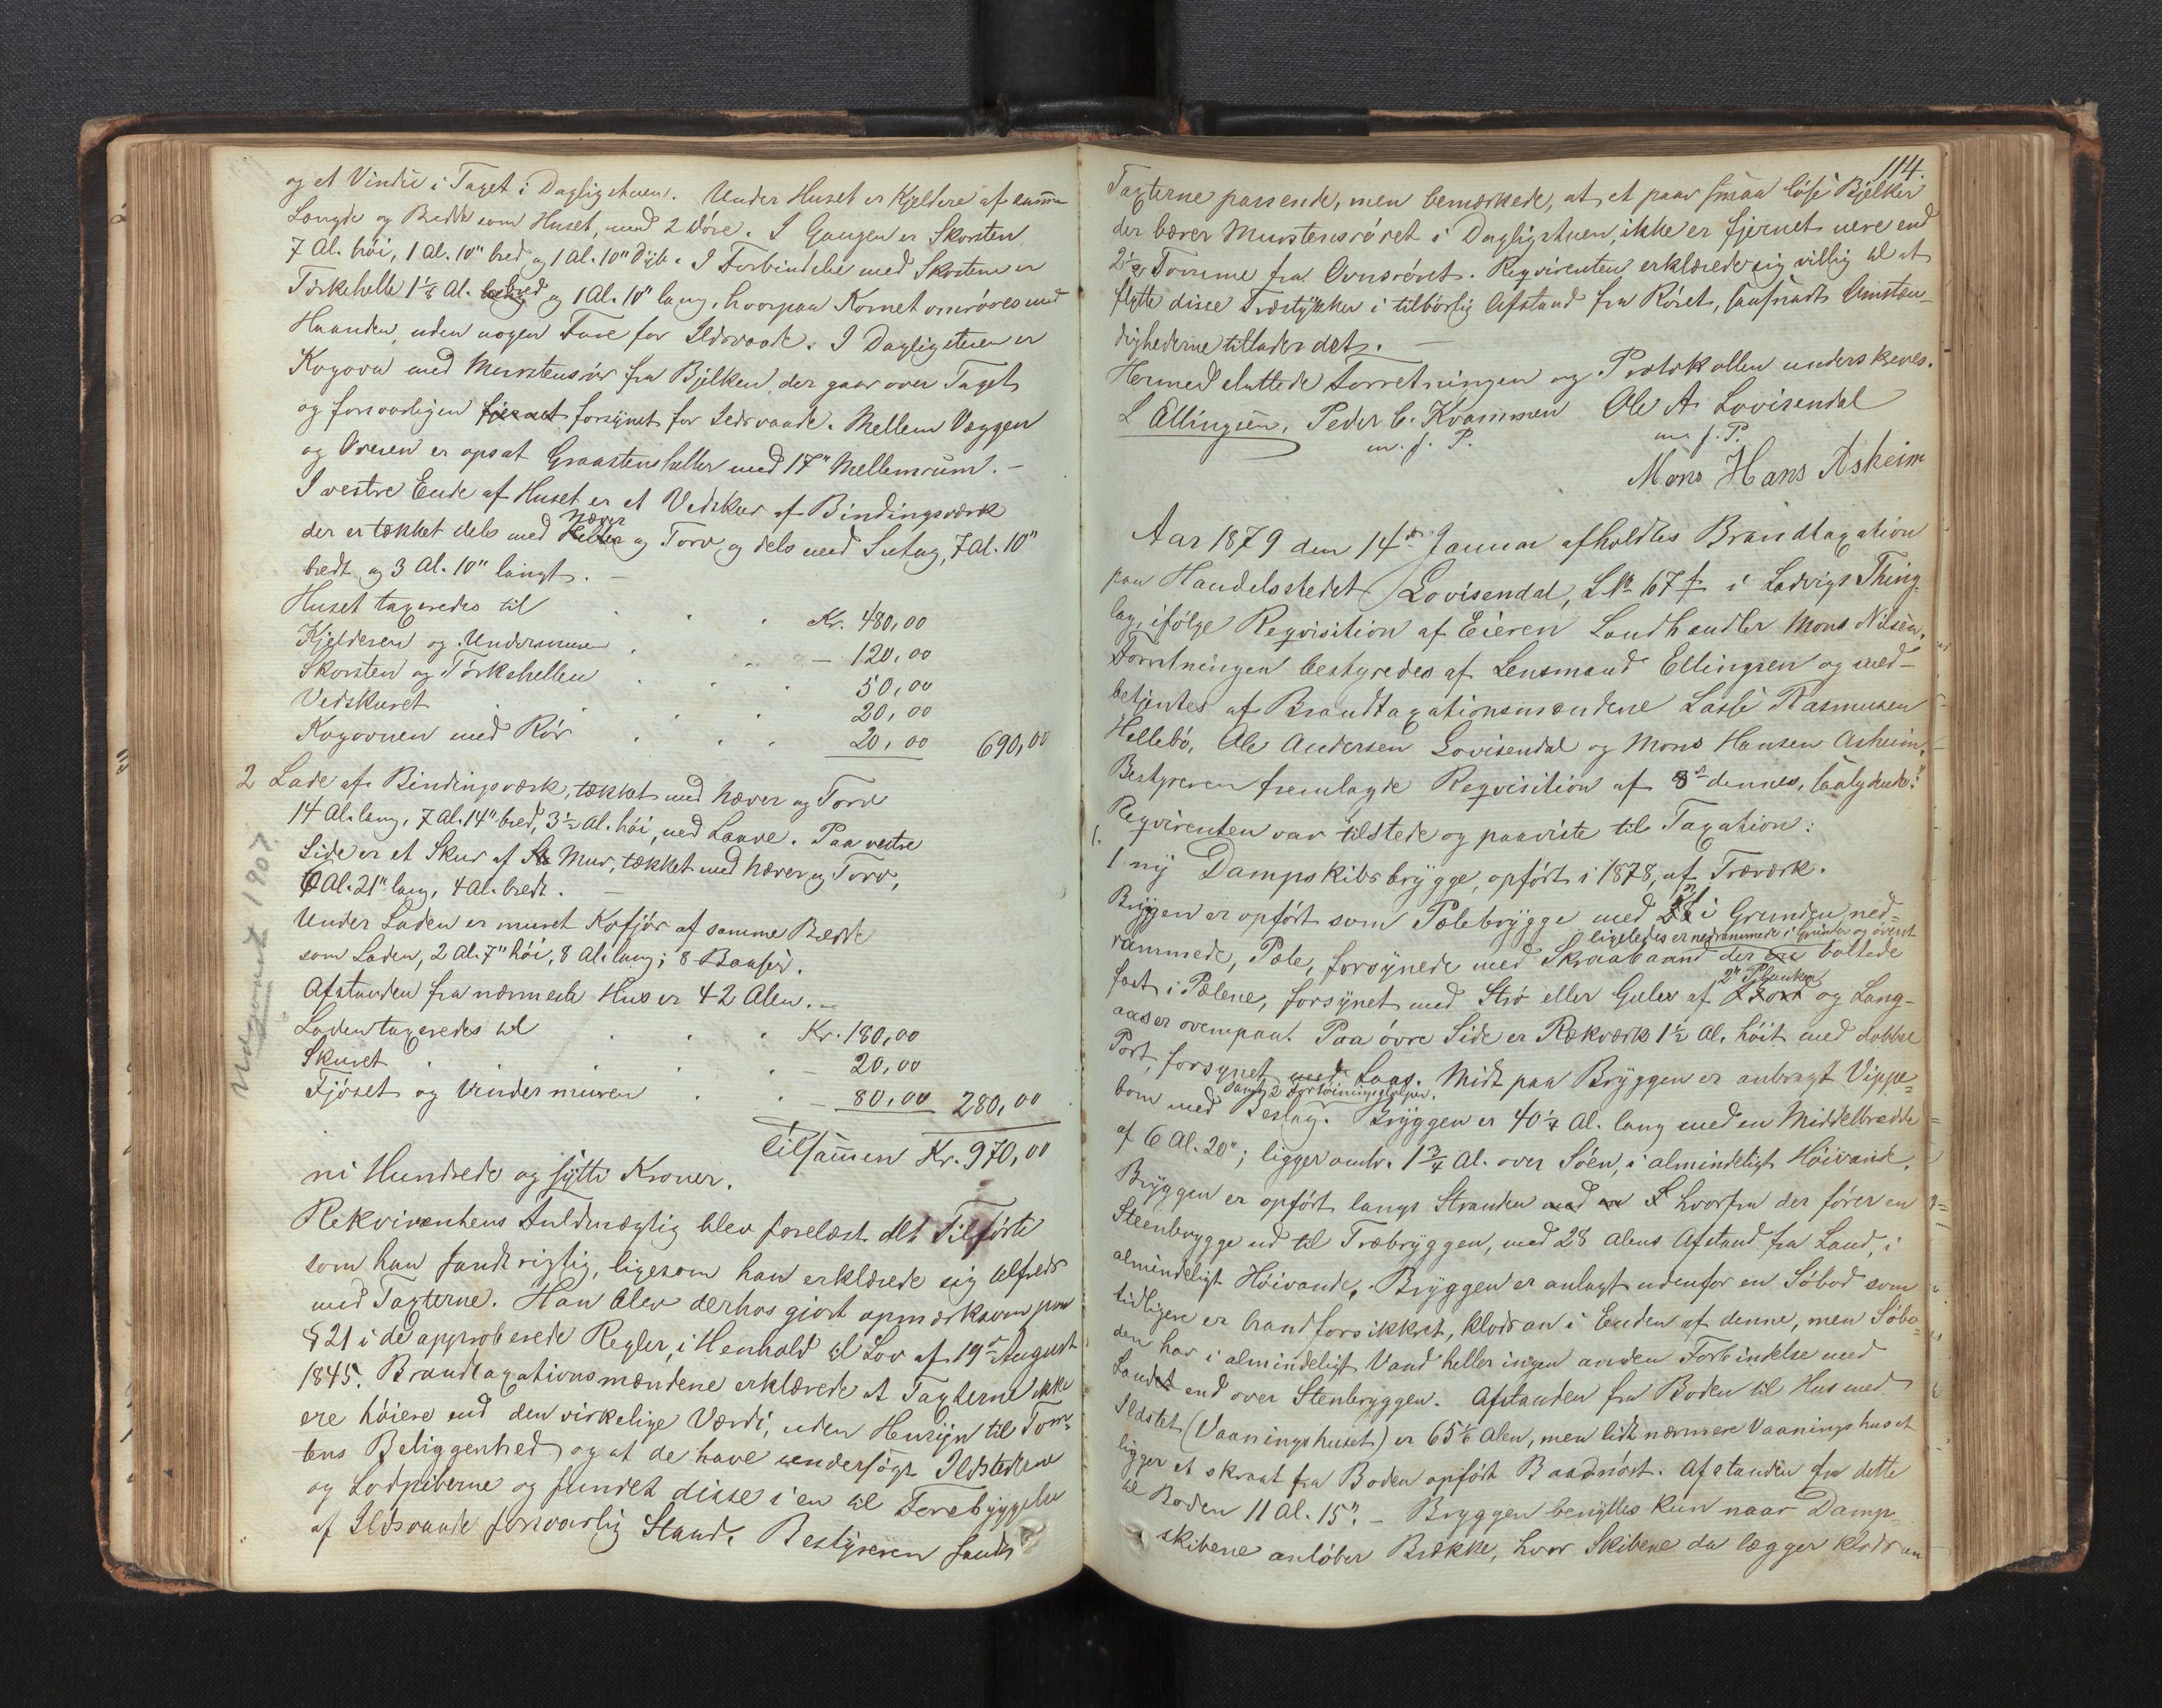 og et Vindu i Taget i Dagligstuen. Under Huset er Kjeldere af samme
Længde og Bredde som Huset, med 2 Döre. I Gangen er Skorsten
7 Al. höi, 1 Al. 10" bred og 1 Al. 10" dyb. I Forbindelse med Skorstenen er
Törkehelle 1 1/8 Al. bred og 1 Al. 10" lang, hvorpaa Kornet omröres med
Haanden, uden nogen Fare for Ildsvaade. I Dagligstuen er
Kogovn med Murstensrör fra Bjelken, der gaar over Taget
og forsvarligen fjernet forsynet for Ildsvaade. Mellem Væggen
og Ovnen er opsat Graastensheller med 17" Mellemrum. –
I vestre Ende af Huset er et Vedskur af Bindingsværk
der er tækket dels med Næver og Torv og dels med Sutag, 7 Al. 10"
bredt og 3 Al. 10" langt. –
Huset taxeredes til . . Kr. 480,00
Kjelderen og Undermuren . . – 120,00
Skorsten og Törkehellen . . . 50,00
Vedskuret . . . 20,00
Kogovnen med Rör . . . 20,00 690,00
2 Lade af Bindingsværk, tækket med Næver og Torv
14 Al. lang, 7 Al. 14" bred, 3 1/2 Al. höi, med Laave. Paa vestre
Side er et Skur af St Mur, tækket med Næver og Torv,
6 Al. 21" lang, 4 Al. bredt. –
Under Laden er muret Kofjös af samme Bredde
som Laden, 2 Al. 7" höi, 8 Al. lang; 8 Baaser.
Afstanden fra nærmeste Hus er 42 Alen. –
Laden taxeredes til . . . Kr. 180,00
Skuret . . . – 20,00
Fjöset og Undermuren . . – 80,00 280,00
Tilsammen Kr. 970,00
ni Hundrede og sytti Kroner.
Rekvirentens Fuldmægtig blev forelæst det Tilförte
som han fandt rigtig, ligesom han erklærede sig tilfreds
med Taxterne. Han blev derhos gjort opmærksom paa
§ 21 i de approberede Regler, i Henhold til Lov af 19de August
1845. Brandtaxationsmændene erklærede at Taxterne ikke
ere höiere end den virkelige Værdi, uden Hensyn til Tom-
tens Beliggenhed og at de have undersögt Ildstederne
og Lodpiberne og fundet disse i en til Forebyggelse
af Ildsvaade forsvarlig Stand. Bestyreren fandt
Udgaaet 1907.
114.
Taxterne passende, men bemærkede, at et paar smaa löse Bjelker
der bærer Murstensröret i Dagligstuen, ikke er fjernet mere end
2 1/2 Tomme fra Ovnsröret. Reqvirenten erklærede sig villig til at
flytte disse Træstykker i tilbörlig Afstand fra Röret, saasnart Omstæn-
dighederne tillader det. –
Hermed sluttede Forretningen og Protokollen underskreves.
L Ellingsen, Peder C. Kvammen Ole A. Lovisendal
m. f. P. m. f. P.
Mons Hans Askeim
Aar 1879 den 14de Januar afholdtes Brandtaxation
paa Handelsstedet Lovisendal, L No 67 f i Ladvigs Thing-
lag, ifölge Reqvisition af Eieren Landhandler Mons Nilsen.
Forretningen bestyredes af Lensmand Ellingsen og med-
betjentes af Brandtaxationsmændene Lasse Rasmusen
Hellebö, Ole Andersen Lovisendal og Mons Hansen Asheim.
Bestyreren fremlagde Reqvisition af 8de dennes, saalydende:
Reqvirenten var tilstede og paaviste til Taxation:
1. 1 ny Dampskibsbrygge, opfört i 1878, af Træværk.
Bryggen er opfört som Pælebrygge med i Grunden ned-
ligeledes er nedrammede i Grunden og överst
rammede, Pæle, forsynede med Skraabaand der ere boltede
2" Planker
fast i Pælene, forsynet med Strö eller Gulv af og Lang-
aaser ovenpaa. Paa övre Side er Rækværk 1 1/2 Al. höit med dobbel
Port, forsynet med Laas. Midt paa Bryggen er anbragt Vippe-
samt 2 Fortöiningspæler.
bom med Beslag. Bryggen er 40 1/4 Al. lang med en Middelbredde
af 6 Al. 20"; ligger omtr. 1 3/4 Al. over Söen, i almindeligt Höivande.
Bryggen er opfört langs Stranden med en S hvorfra der förer en
Steenbrygge ud til Træbryggen, med 28 Alens Afstand fra Land, i
almindeligt Höivande. Bryggen er anlagt udenfor en Söbod som
tidligere er brandforsikkret, klods an i Enden af denne, men Söbo-
den har i almindeligt Vand heller ingen anden Forbindelse med
Landet end over Stenbryggen. Afstanden fra Boden til Hus med
Ildsted (Vaaningshuset) er 65 1/6 Alen, men lidt nærmere Vaaningshuset
ligger et skraat fra Boden opfört Baadnöst. Afstanden fra dette
til Boden 11 Al. 15". – Bryggen benyttes kun naar Damp-
skibene anlöber Brække, hvor Skibene da lægger klods an